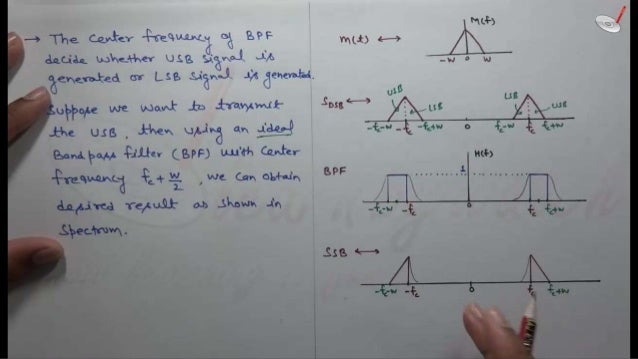 → The Center frequency of BPF
decide whether USB Signal is
generated or LSB Signal is generated.
Suppose we want to transmit
the USB, then using an ideal
Bandpass filter (BPF) with Center
frequency fc + W/2, we can obtain
desired result as shown in
Spectrum.
m(t) ↔ M(f)
-W 0 W
SDSB ↔ USB LSB LSB USB
-fc-W -fc -fc+W 0 fc-W fc fc+W
BPF 1 H(f)
-fc-W -fc 0 fc fc+W
SSB ↔
-fc-W -fc 0 fc fc+W